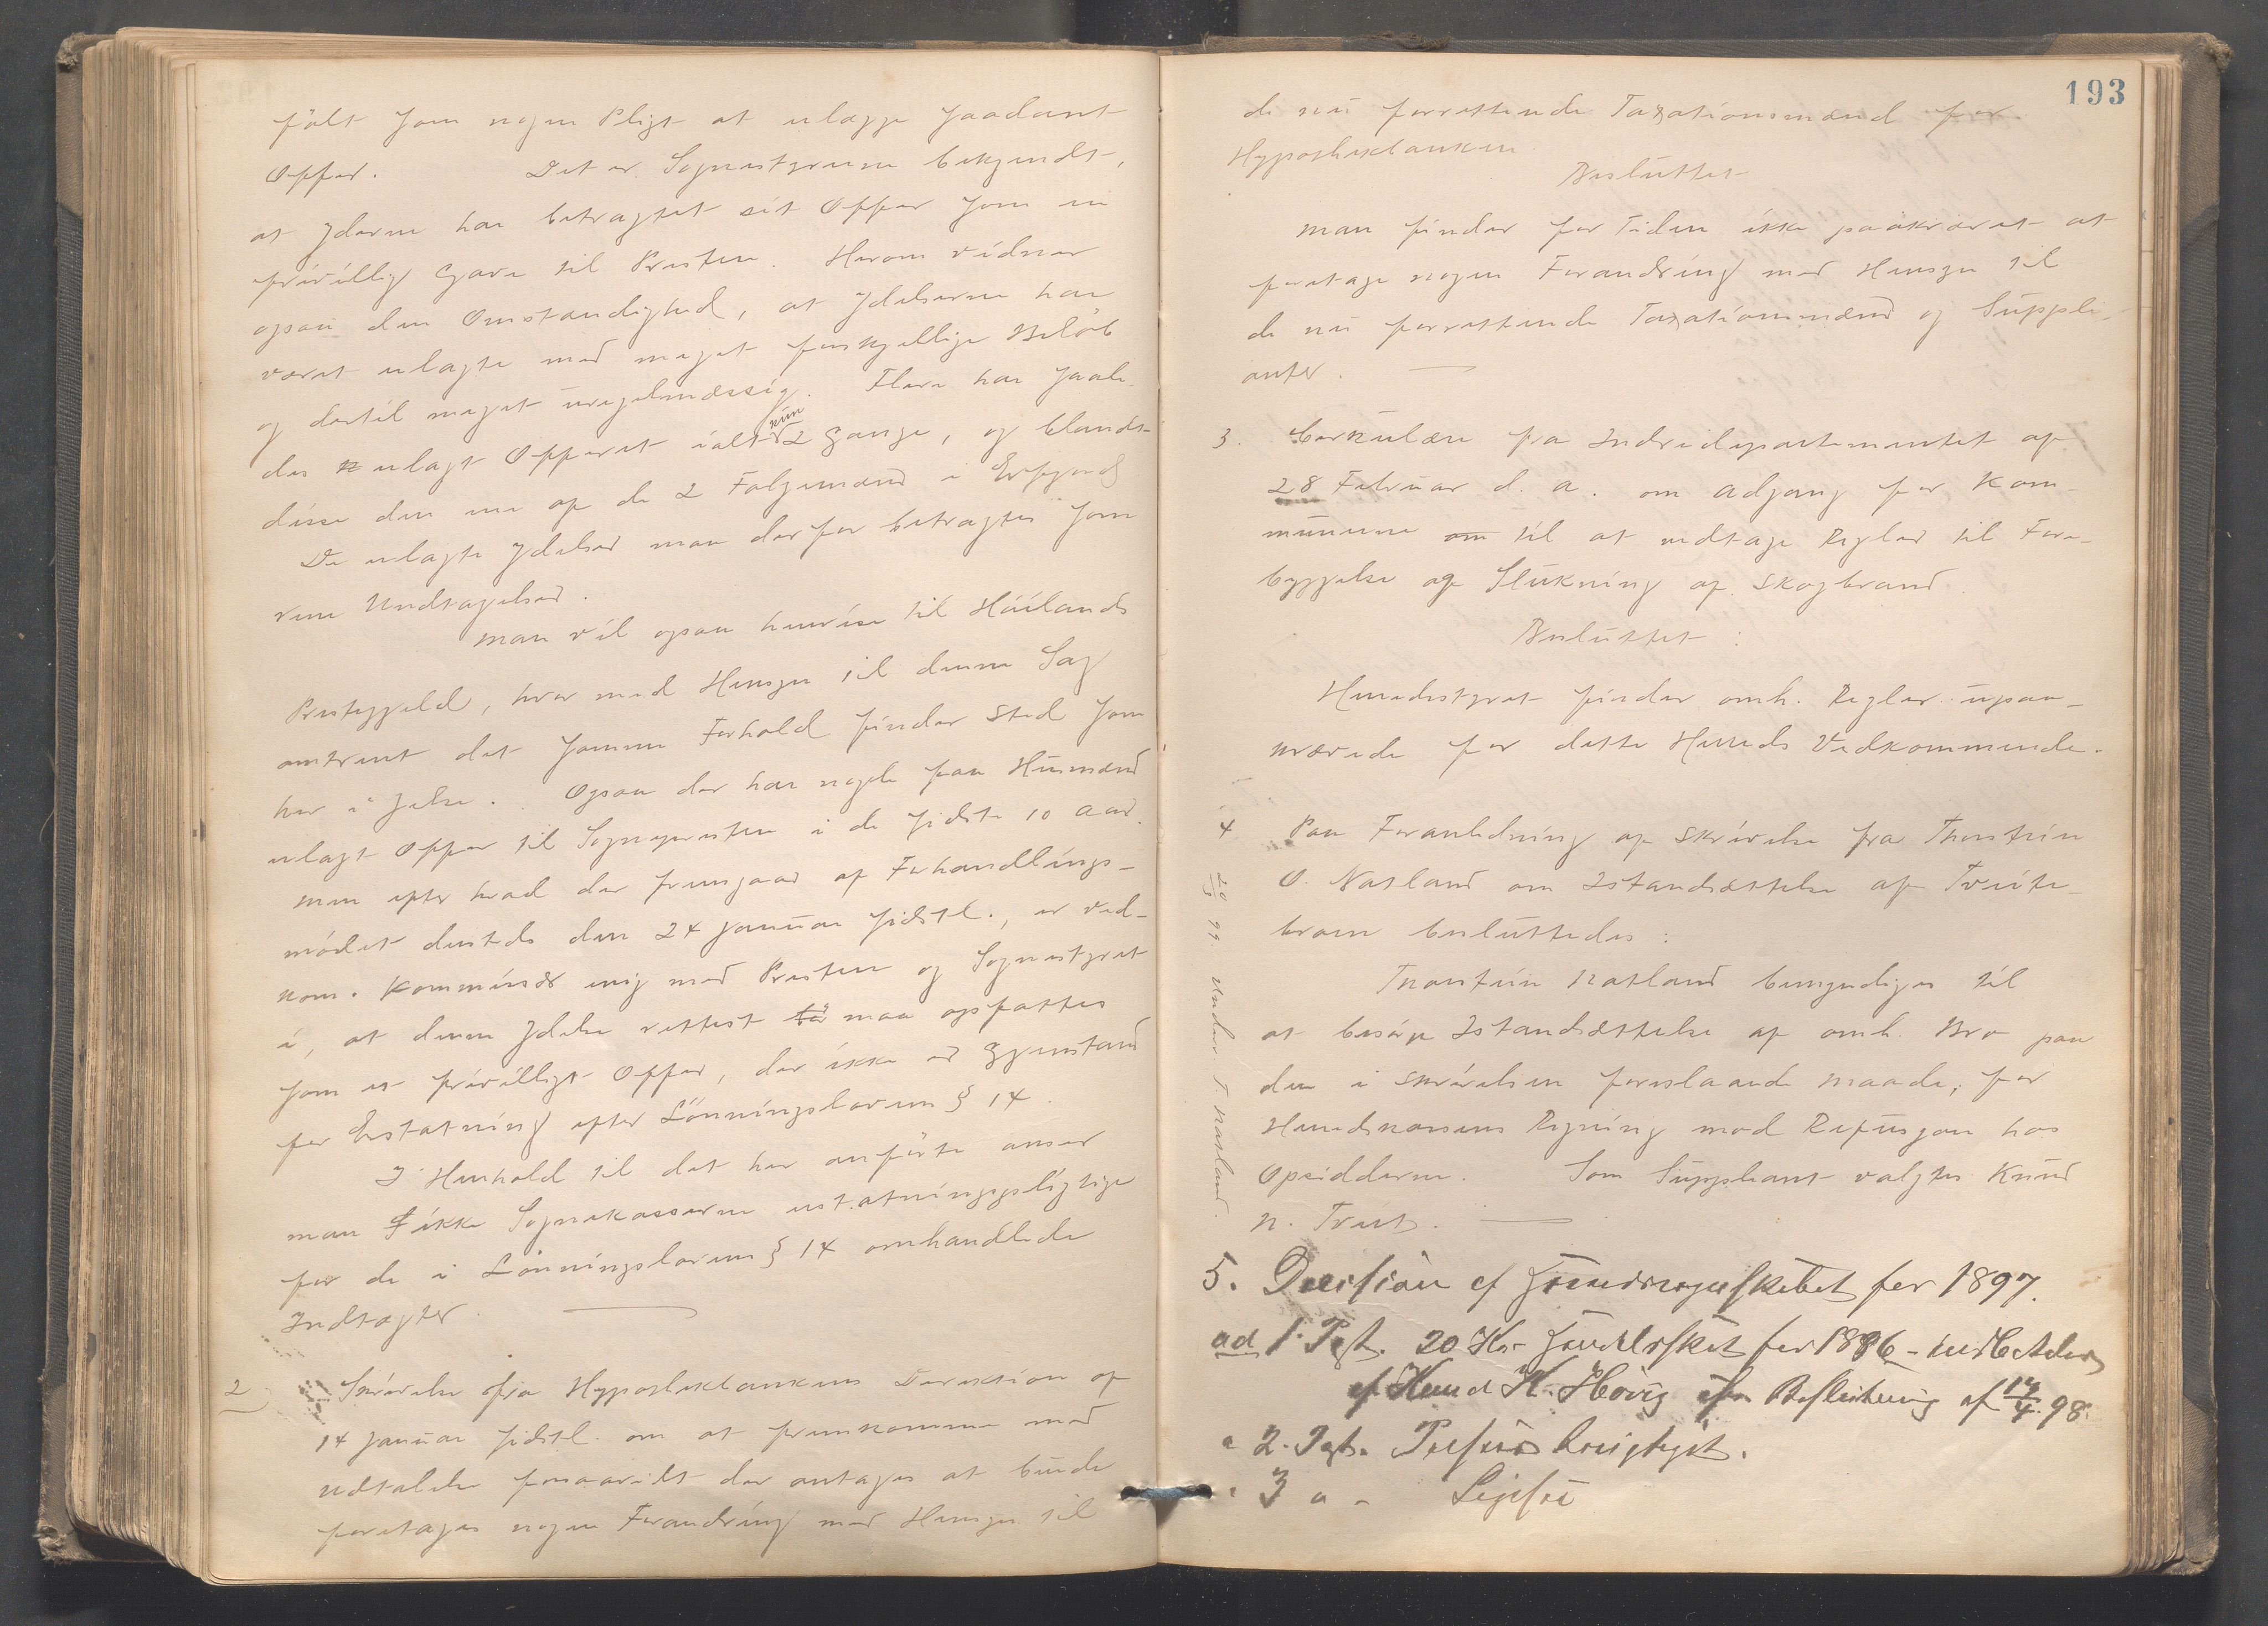 følt som nogen Pligt at erlægge saadant
Offer. Det er Sognestyrerne bekjendt,
at Yderne har betragtet sit Offer som en
frivillig Gave til Presten. Herom vidner
ogsaa den Omstændighed, at Ydelserne har
været erlagte med meget forskjellige Beløb
og dertil meget uregelmæssig. Flere har saale-
des erlagt Offeret ialt kun 2 Gange, og blandt
disse den ene af de 2 Følgemænd i Erfjord
De erlagte Ydelser maa derfor betragtes som
rene Undtagelser.
Man vil ogsaa henvise til Høilands
Prestegjeld, hvor med Hensyn til denne Sag
omtrent det samme Forhold finder Sted som
her i Jelse. Ogsaa der har nogle faa Husmænd
erlagt Offer til Sognepresten i de sidste 10 Aar.
men efter hvad der fremgaar af Forhandlings-
mødet dersteds den 24 Januar sidstl., er ved-
kom. Kommissær enig med Presten og Sognestyret
i, at denne Ydelse rettest maa opfattes
som et frivilligt Offer, der ikke er Gjenstand
for Erstatning efter Lønningslovens § 14.
I Henhold til det her anførte anser
man ikke Sognekasserne erstatningspligtige
for de i Lønningslovens § 14 omhandlede
Indtægter.
2 Skrivelse fra Hypothekbankens Direktion af
14 Januar sidstl. om at fremkomme med
Udtalelse forsaavidt der antages at burde
foretages nogen Forandring med Hensyn til
193
de nu forrettende Taxationsmænd for
Hypothekbanken
Besluttet
Man finder for Tiden ikke paakrævet at
foretage nogen Forandring med Hensyn til
de nu forrettende Taxationsmænd og Supple-
anter.
3. Cirkulære fra Indredepartementet af
28 Februar d. a. om Adgang for Kom-
munerne om til at vedtage Regler til Fore-
byggelse og Slukning af Skogbrand.
Besluttet:
Herredsstyret finder omh. Regler upaa-
krævede for dette Herreds Vedkommende.
4 Paa Foranledning af Skrivelse fra Thorstein
O. Natland om Istandsættelse af Tveite-
broen besluttedes:
Thorstein Natland bemyndiges til
at besørge Istandsættelse af omh. Bro paa
den i Skrivelsen foreslaaede Maade, for
Herredskassens Regning mod Refusjon hos
Opsidderne. Som Suppleant valgtes Knud
N. Tveit.
Under. T. Natland.
5. Decision af Herredsregnskabet for 1897.
ad 1. Pst. 20 Kr. for 1896 - indbetales
af Knud K. Høivig efter Beslutning af 14/4. 98.
" 2. Pst.
" 3 " -